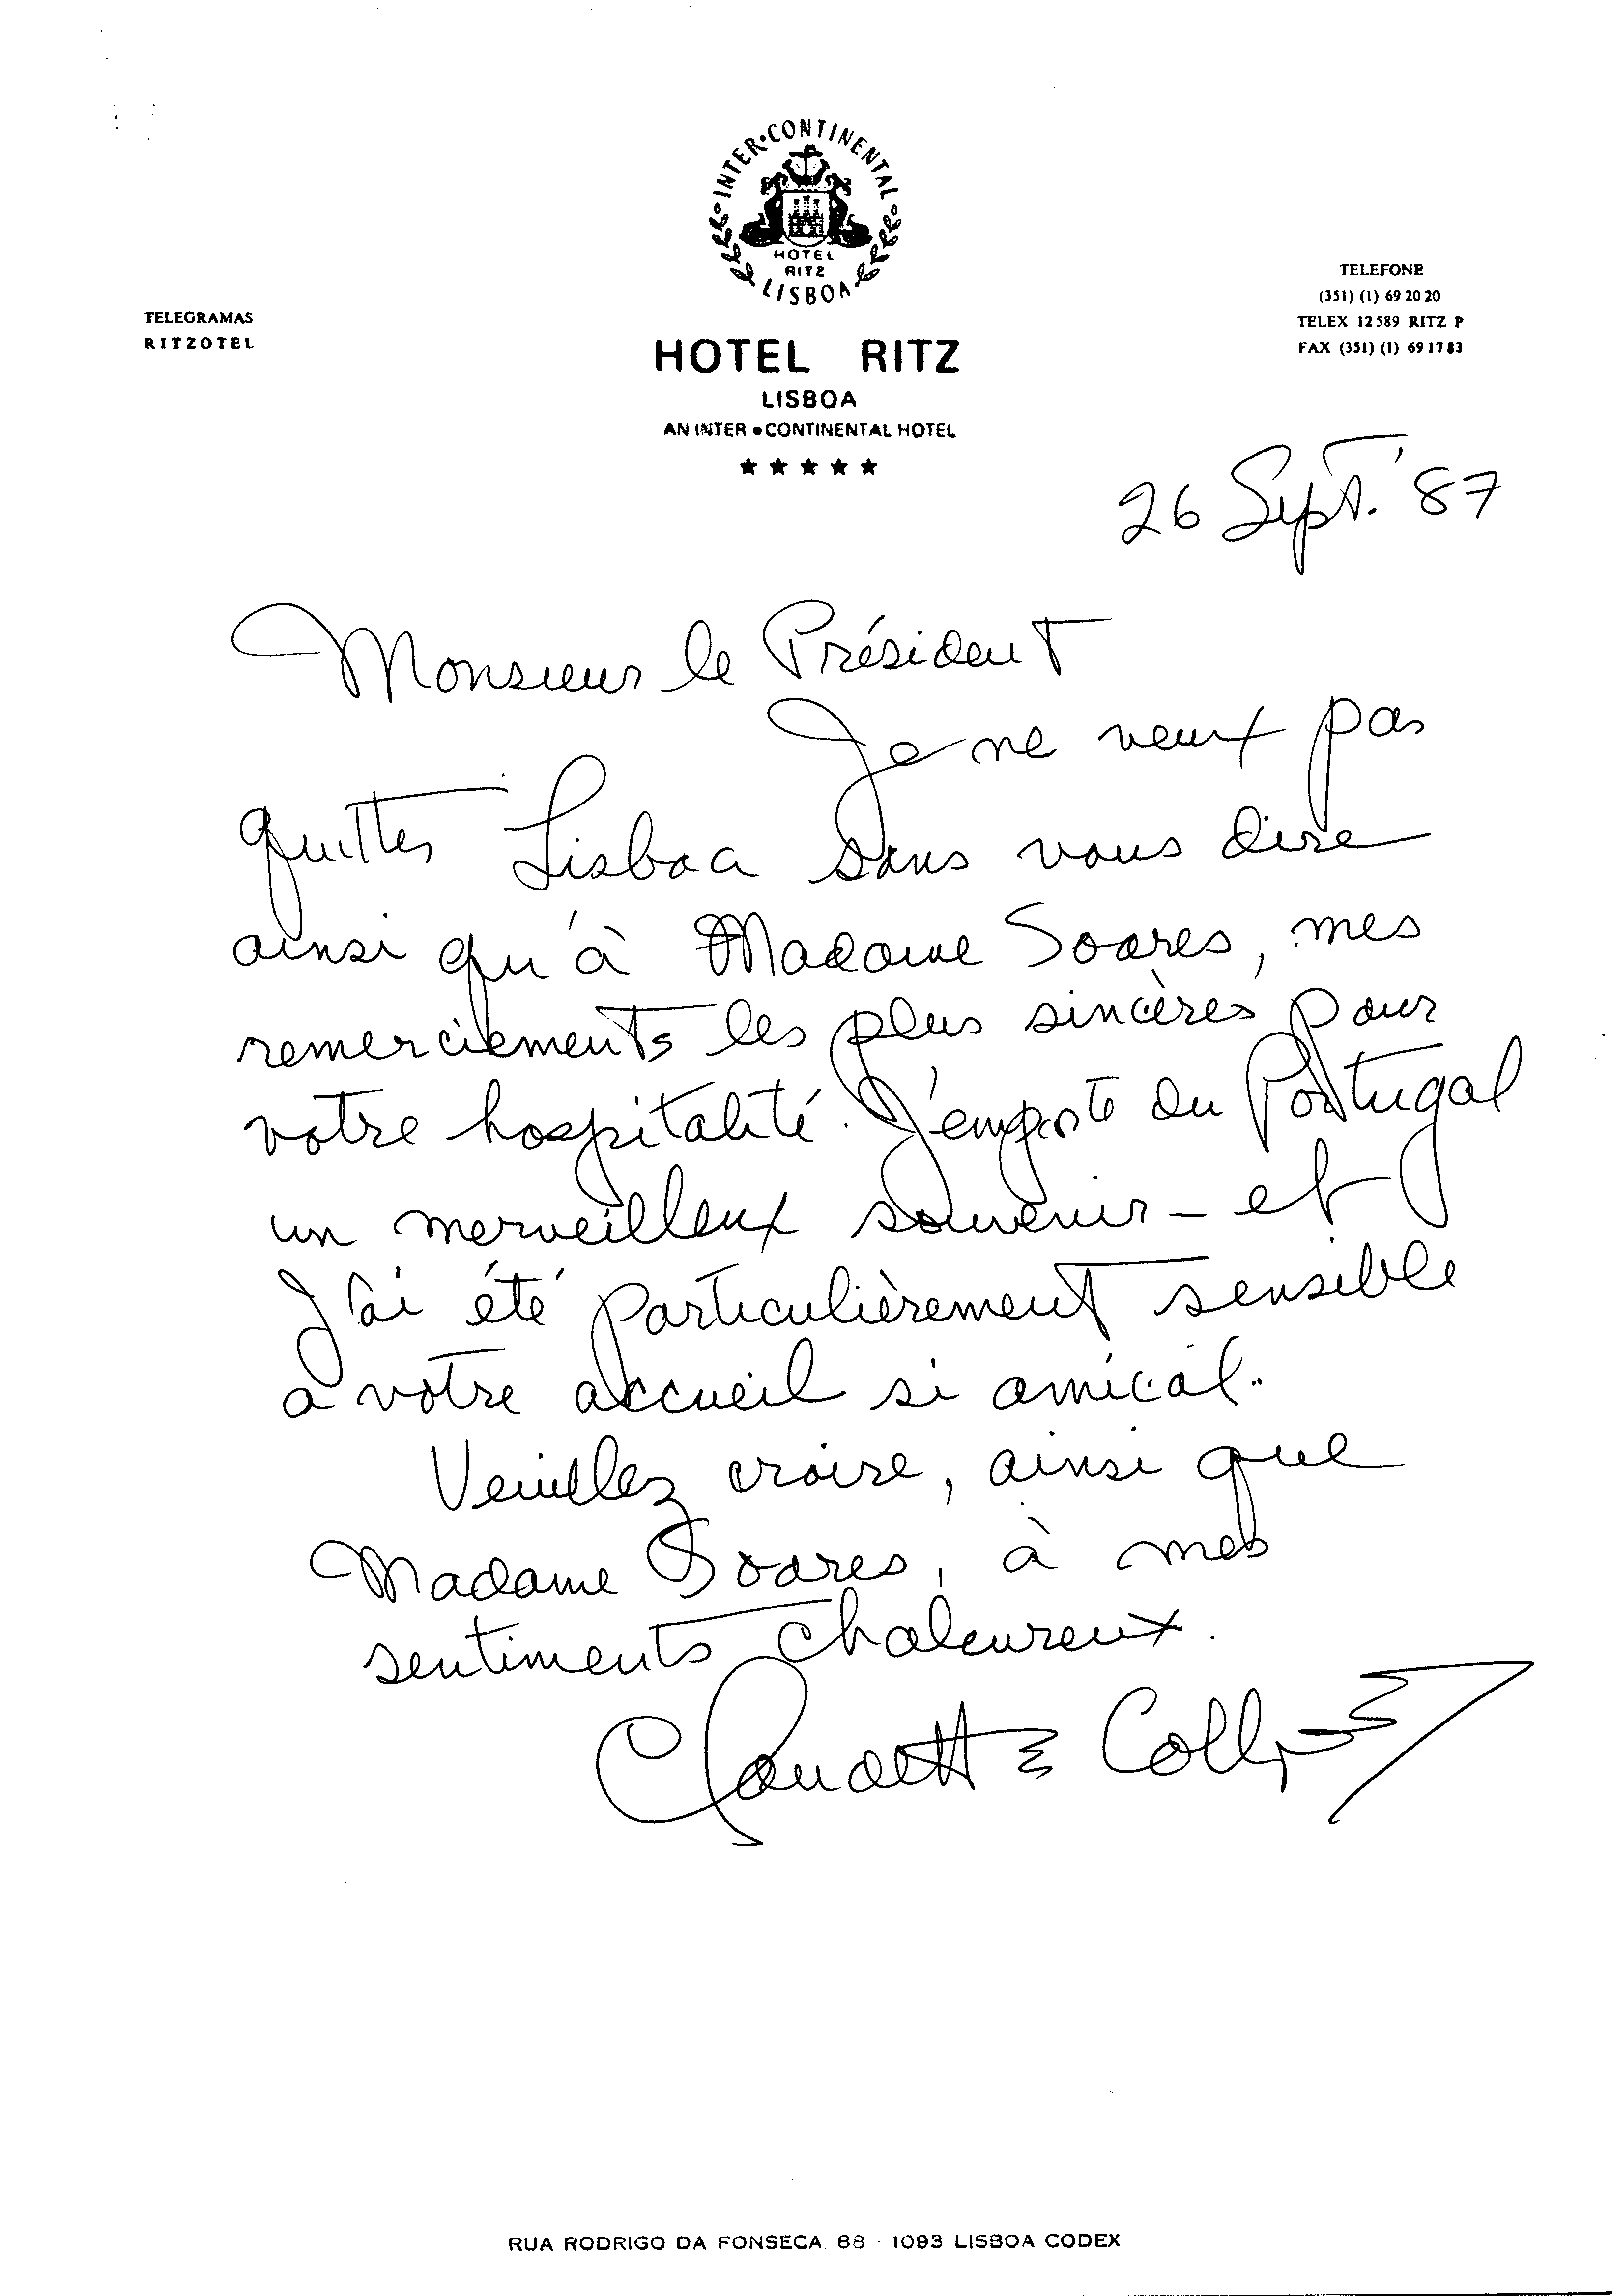 INTER•CONTINENTAL
HOTEL
RITZ
LISBOA
TELEGRAMAS
RITZOTEL
TELEFONE
(351) (1) 69 20 20
TELEX 12589 RITZ P
FAX (351) (1) 69 17 83
HOTEL RITZ
LISBOA
AN INTER•CONTINENTAL HOTEL
★★★★★
26 Sept. '87
Monsieur le Président
Je ne veux pas
quitter Lisboa sans vous dire
ainsi qu'à Madame Soares, mes
remerciements les plus sincères pour
votre hospitalité. J'emporte du Portugal
un merveilleux souvenir - et
j'ai été particulièrement sensible
a votre accueil si amical.
Veuillez croire, ainsi que
Madame Soares, à mes
sentiments chaleureux.
Claudette
RUA RODRIGO DA FONSECA, 88 · 1093 LISBOA CODEX